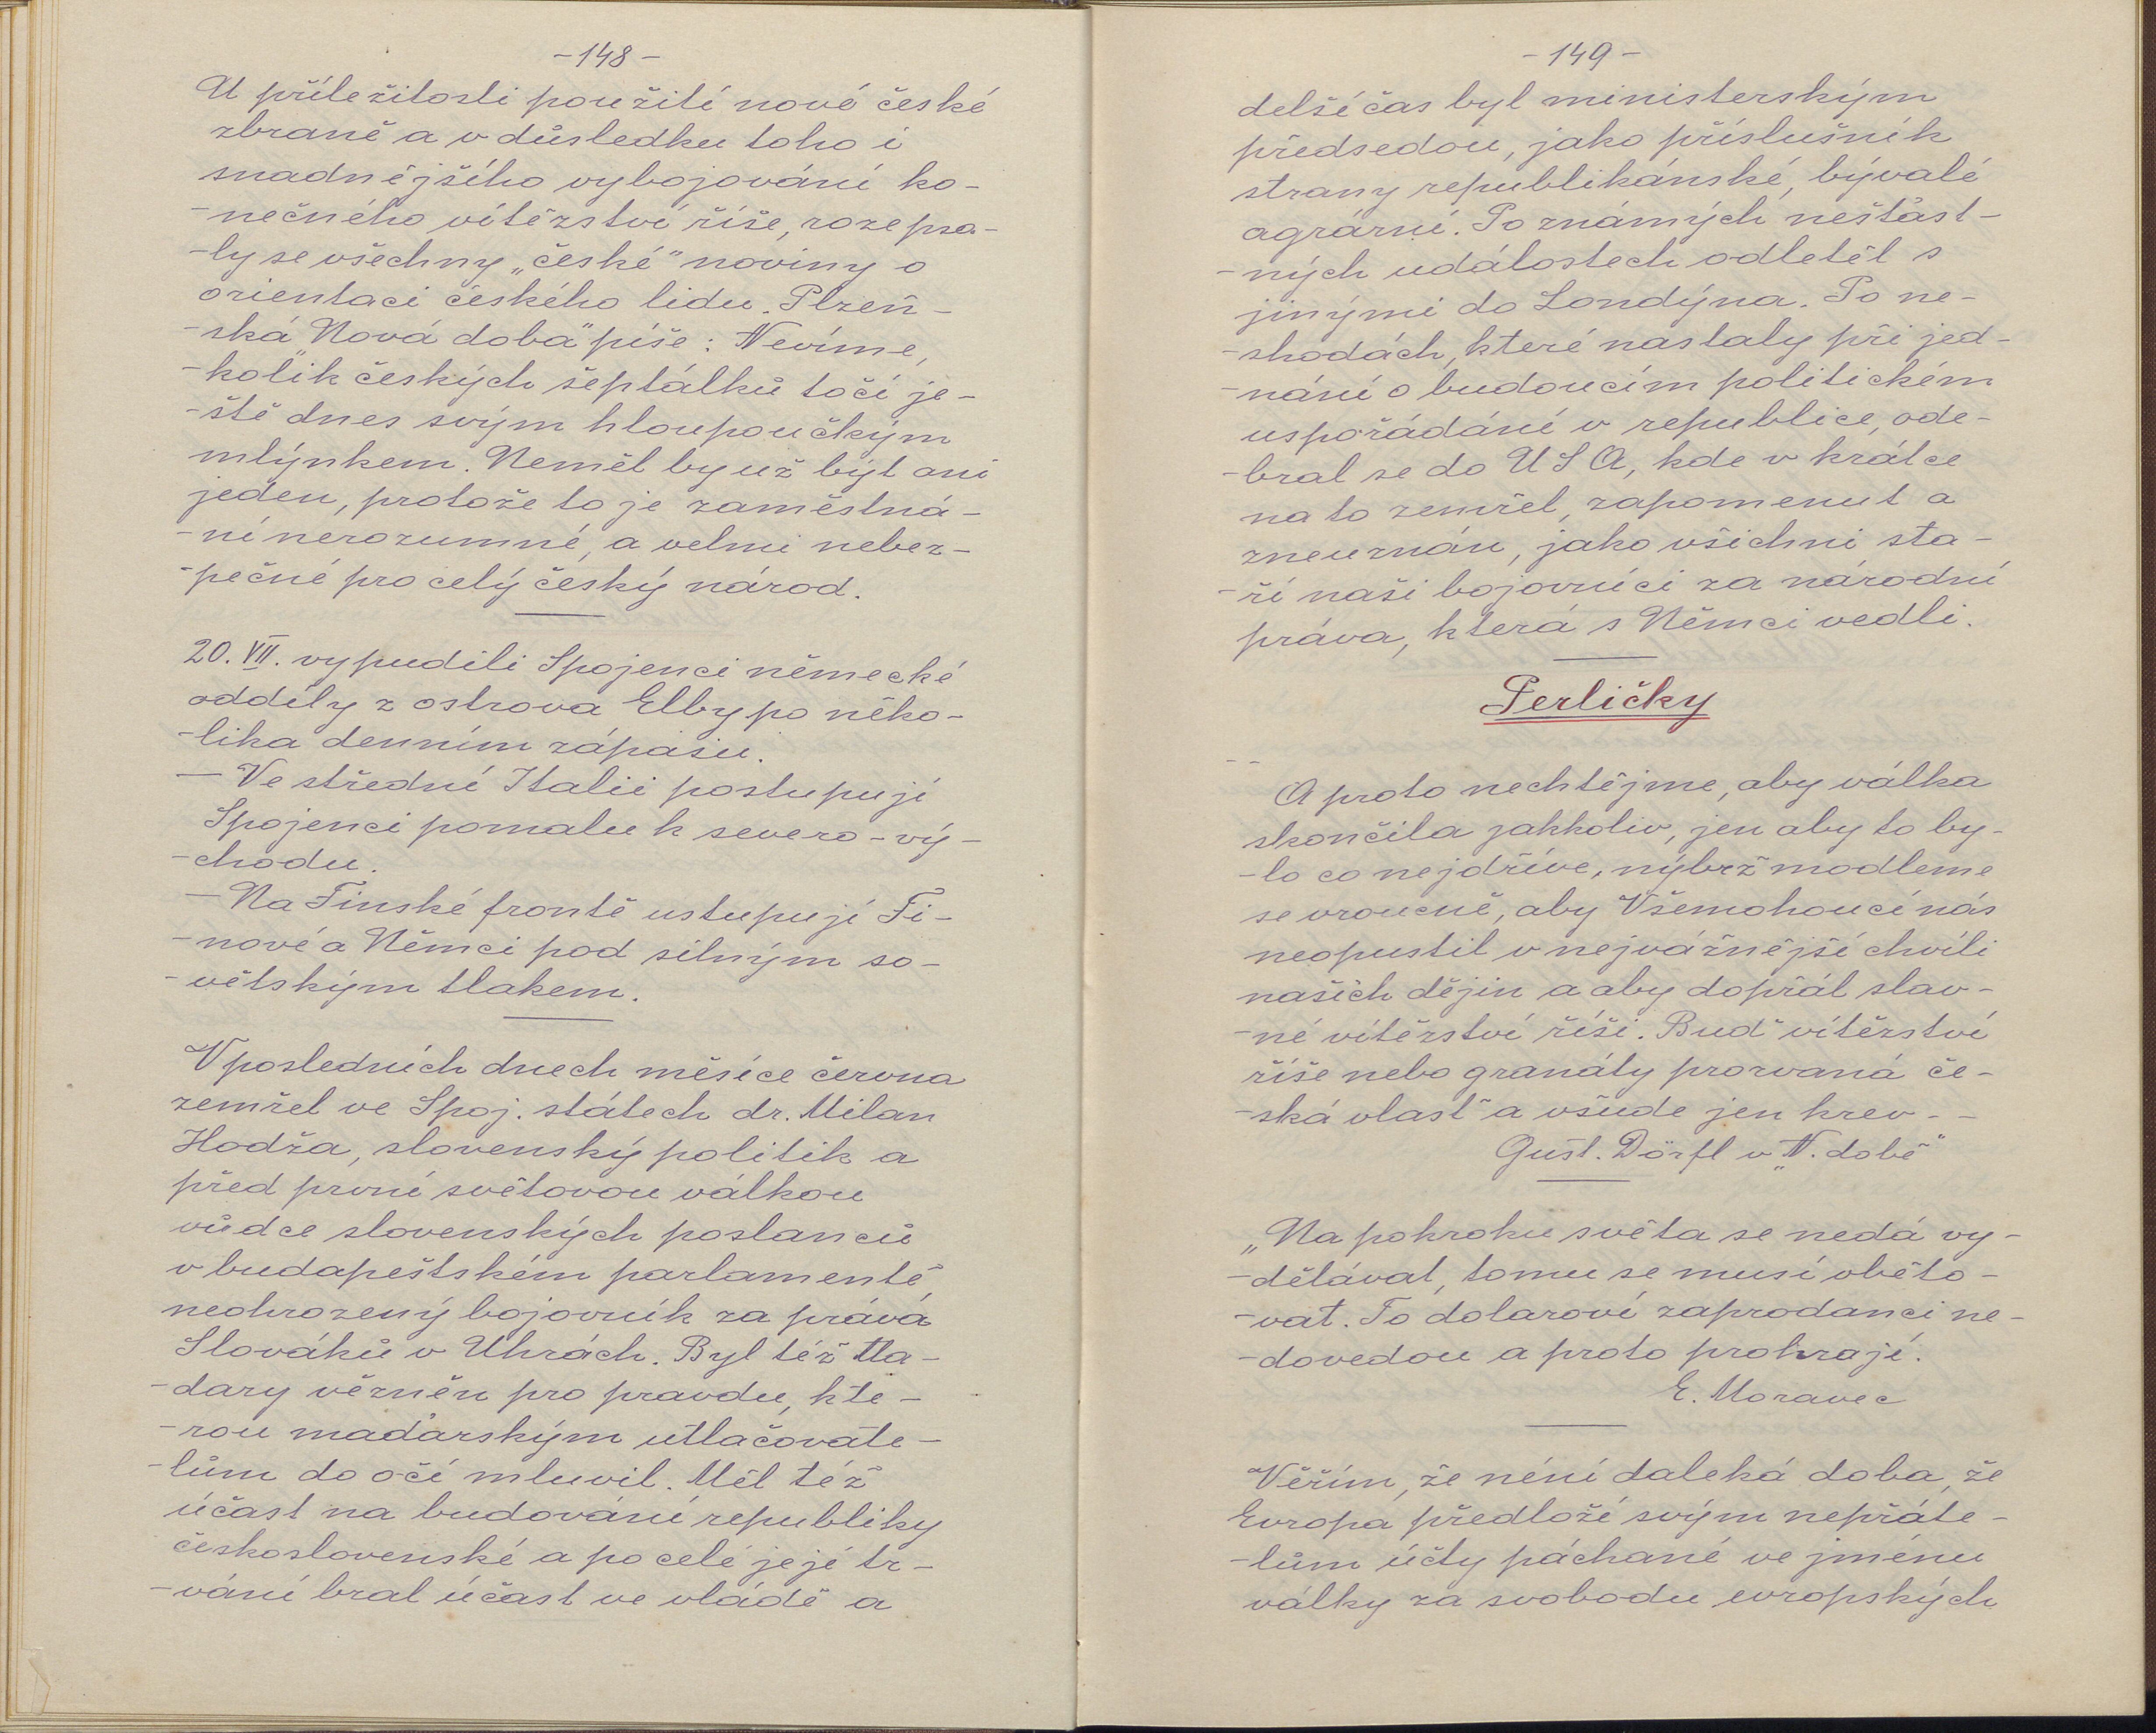 -148-
U příležitosti použití nové české
zbraně a v důsledku toho i
snadnějšího vybojování ko-
-nečného vítězství říše, rozepsa-
-ly se všechny „české" noviny o
orientaci českého lidu. Plzeň-
-ská „Nová doba" píše: Nevíme,
-kolik českých šeptálků točí je-
-ště dnes svým hloupoučkým
mlýnkem. Neměl by už být ani
jeden, protože to je zaměstná-
-ní nerozumné, a velmi nebez-
-pečné pro celý český národ.
20. VII. vypudili Spojenci německé
oddíly z ostrova Elby po něko-
-lika denním zápasu.
— Ve střední Italii postupují
Spojenci pomalu k severo-vý-
-chodu.
— Na Finské frontě ustupují Fi-
-nové a Němci pod silným so-
-větským tlakem.
V posledních dnech měsíce června
zemřel ve Spoj. státech dr. Milan
Hodža, slovenský politik a
před první světovou válkou
vůdce slovenských poslanců
v budapeštském parlamentě,
neohrozený bojovník za práva
Slováků v Uhrách. Byl též Ma-
-ďary vězněn pro pravdu, kte-
-rou maďarským utlačovate-
-lům do očí mluvil. Měl též
účast na budování republiky
československé a po celé její tr-
-vání bral účast ve vládě a
-149-
delší čas byl ministerským
předsedou, jako příslušník
strany republikánské, bývalé
agrární. Po známých nešťast-
-ných událostech odletěl s
jinými do Londýna. Po ne-
-shodách, které nastaly při jed-
-nání o budoucím politickém
uspořádání v republice, ode-
-bral se do USA, kde v krátce
na to zemřel, zapomenut a
zneuznán, jako všichni sta-
-ří naši bojovníci za národní
práva, která s Němci vedli.
Perličky
A proto nechtějme, aby válka
skončila jakkoliv, jen aby to by-
-lo co nejdříve, nýbrž modleme
se vroucně, aby Všemohoucí nás
neopustil v nejvážnější chvíli
našich dějin a aby dopřál slav-
-né vítězství říši. Buď vítězství
říše nebo granáty prorvaná če-
-ská vlasť a všude jen krev - -
Gust. Dörfl v „N. době"
„Na pokroku světa se nedá vy-
-dělávat, tomu se musí oběto-
-vat. To dolaroví zaprodanci ne-
-dovedou a proto prohrají.
E. Moravec
Věřím, že není daleká doba, že
Evropa předloží svým nepřáte-
-lům účty páchané ve jménu
války za svobodu evropských